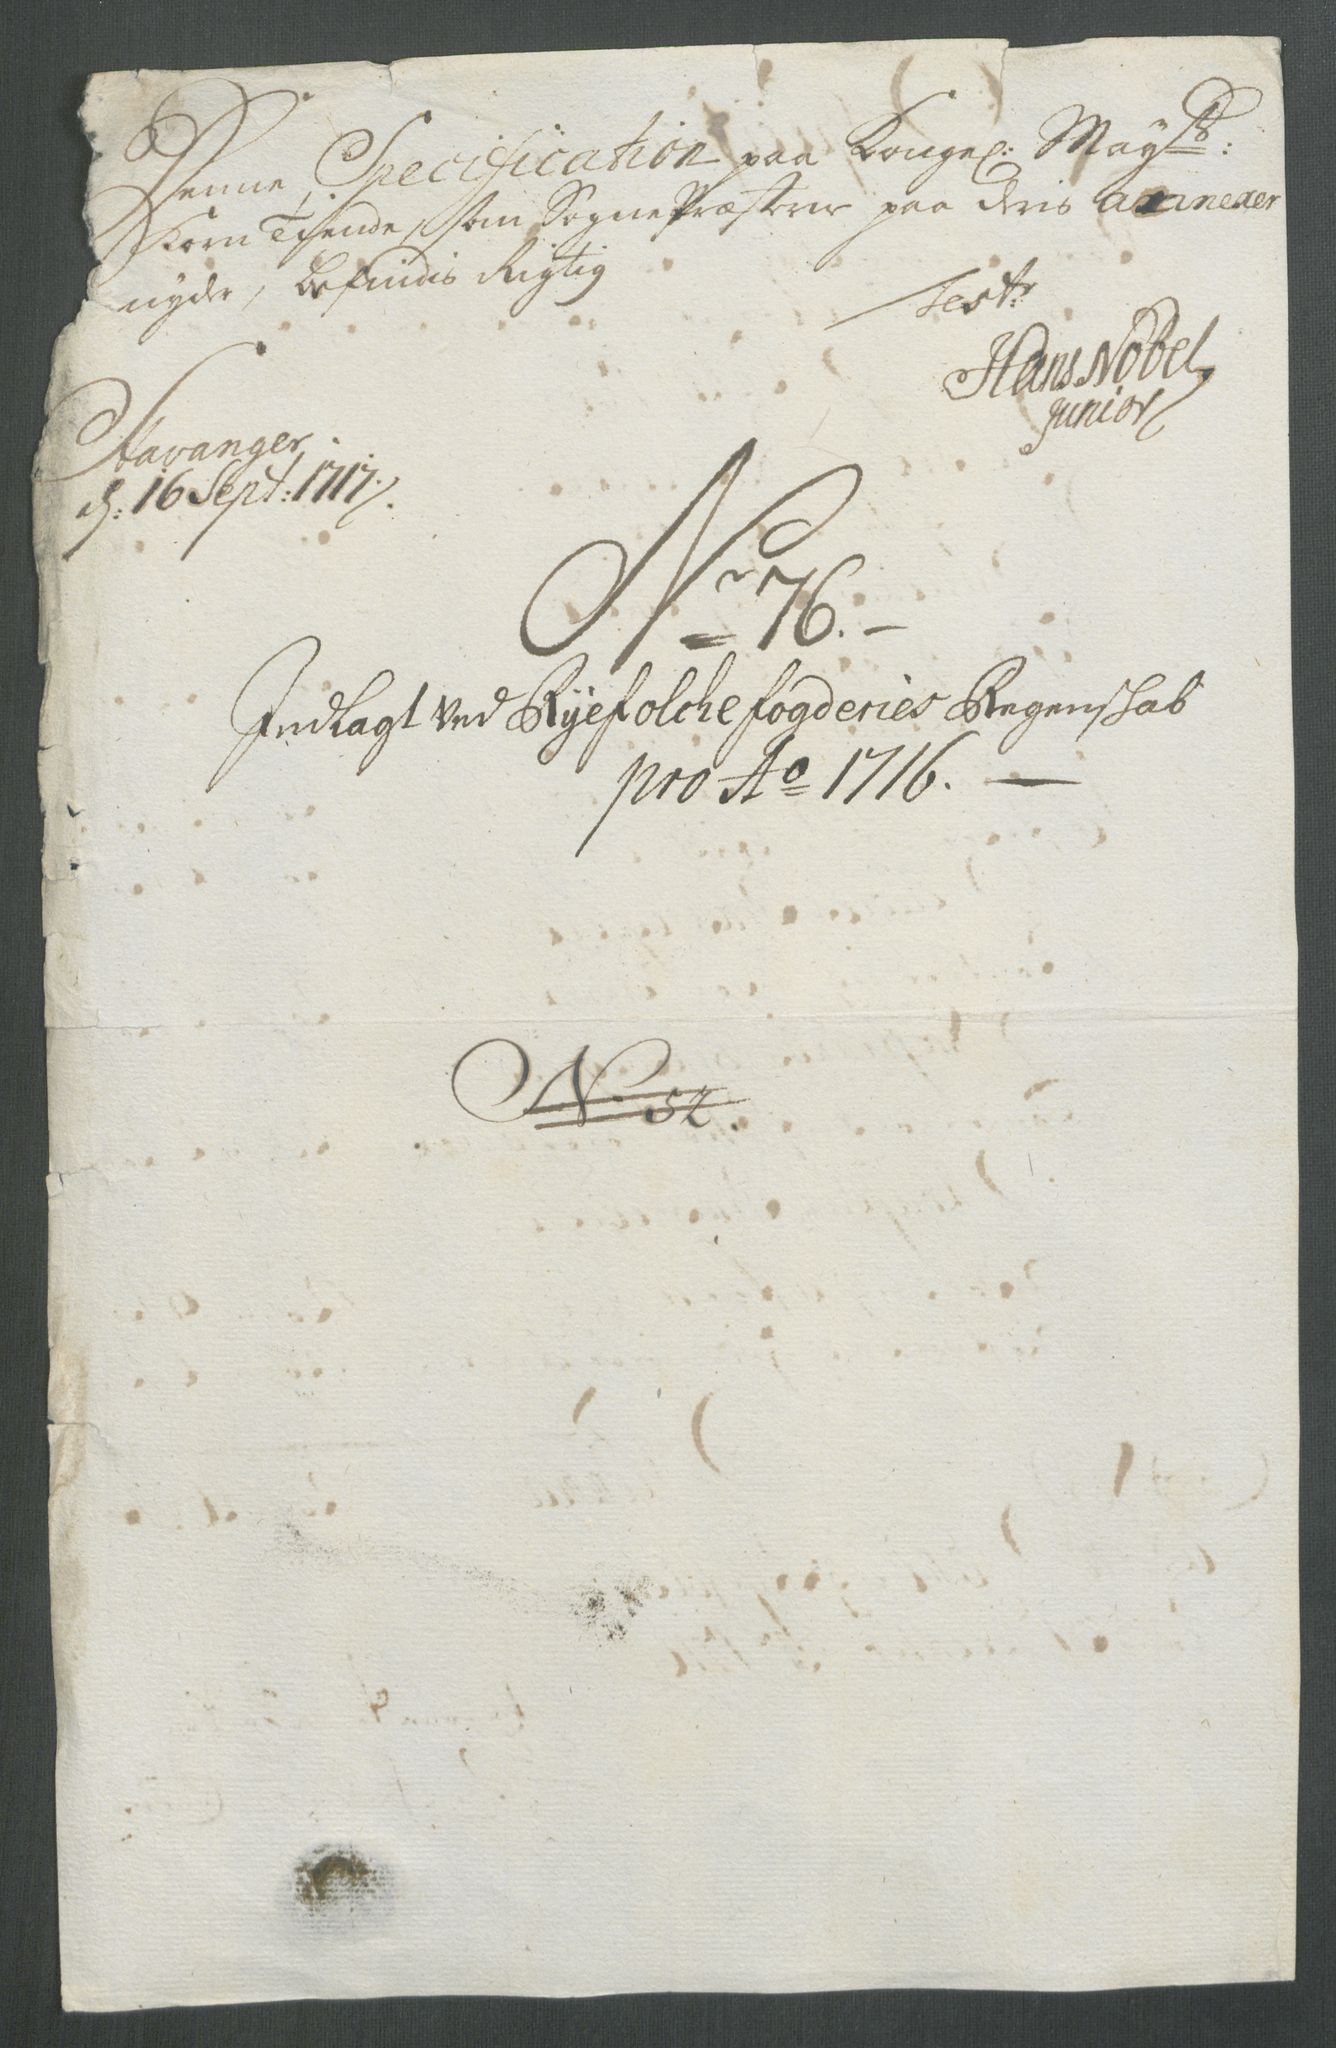 Denne Specification paa Kongel: Mayts:
Korn Tiende, som SognePræsterne paa deris annexer
nyder, befindis Rigtig
Test:
Hans Nobel
junior
Stavanger
d: 16 Sept: 1717.
Nr 76.
Indlagt ved Ryefolche fogderies Regenskab
pro Ao 1716.
N. 52.